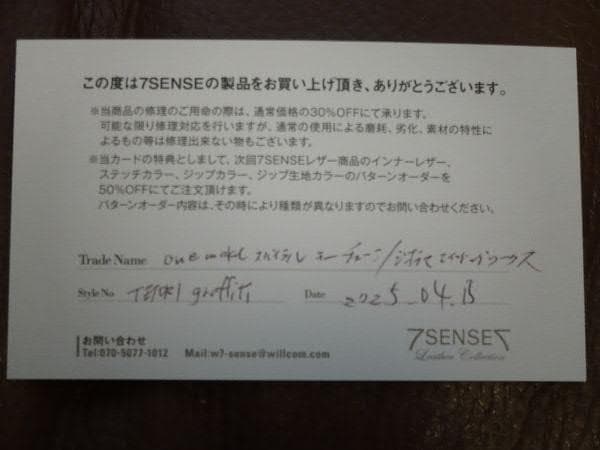 この度は7SENSEの製品をお買い上げ頂き、ありがとうございます。
※当商品の修理のご用命の際は、通常価格の30%OFFにて承ります。
可能な限り修理対応を行いますが、通常の使用による磨耗、劣化、素材の特性に
よるもの等は修理出来ない物もございます。
※当カードの特典としまして、次回7SENSEレザー商品のインナーレザー、
ステッチカラー、ジップカラー、ジップ生地カラーのパターンオーダーを
50%OFFにてご注文頂けます。
パターンオーダー内容は、その時により種類が異なりますのでお問い合わせください。
Trade Name one キーチェーン/
Style No graffiti Date 2025.04.13
お問い合わせ
Tel:070-5077-1012 Mail:w7-sense@willcom.com
7SENSE7
Leather Collection